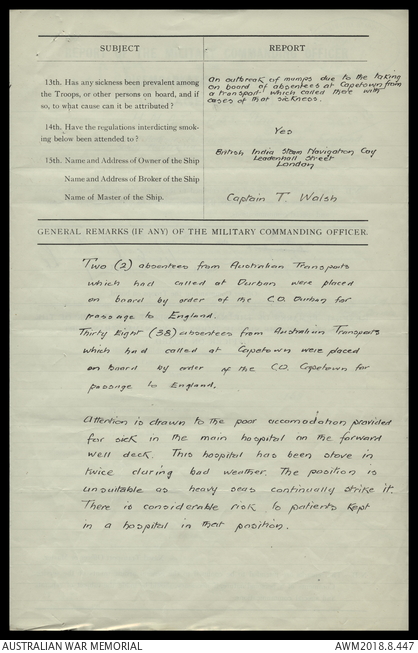 SUBJECT
REPORT
13th. Has any sickness been prevalent among
the Troops, or other persons on board, and if
so, to what cause can it be attributed?
An outbreak of mumps due to the taking
on board of absentees at Capetown from
a transport which called there with
cases of that sickness.
14th. Have the regulations interdicting smok-
ing below been attended to?
Yes
15th. Name and Address of Owner of the Ship
British India Steam Navigation Coy
Leadenhall Street
London
Name and Address of Broker of the Ship
Name of Master of the Ship.
Captain T. Walsh
GENERAL REMARKS (IF ANY) OF THE MILITARY COMMANDING OFFICER.
Two (2) absentees from Australian Transports
which had called at Durban were placed
on board by order of the C.O. Durban for
passage to England.
Thirty Eight (38) absentees from Australian Transports
which had called at Capetown were placed
on board by order of the C.O. Capetown for
passage to England.
Attention is drawn to the poor accomodation provided
for sick in the main hospital on the forward
well deck. This hospital has been stove in
twice during bad weather. The position is
unsuitable as heavy seas continually strike it.
There is considerable risk to patients kept
in a hospital in that position.
AUSTRALIAN WAR MEMORIAL
AWM2018.8.447